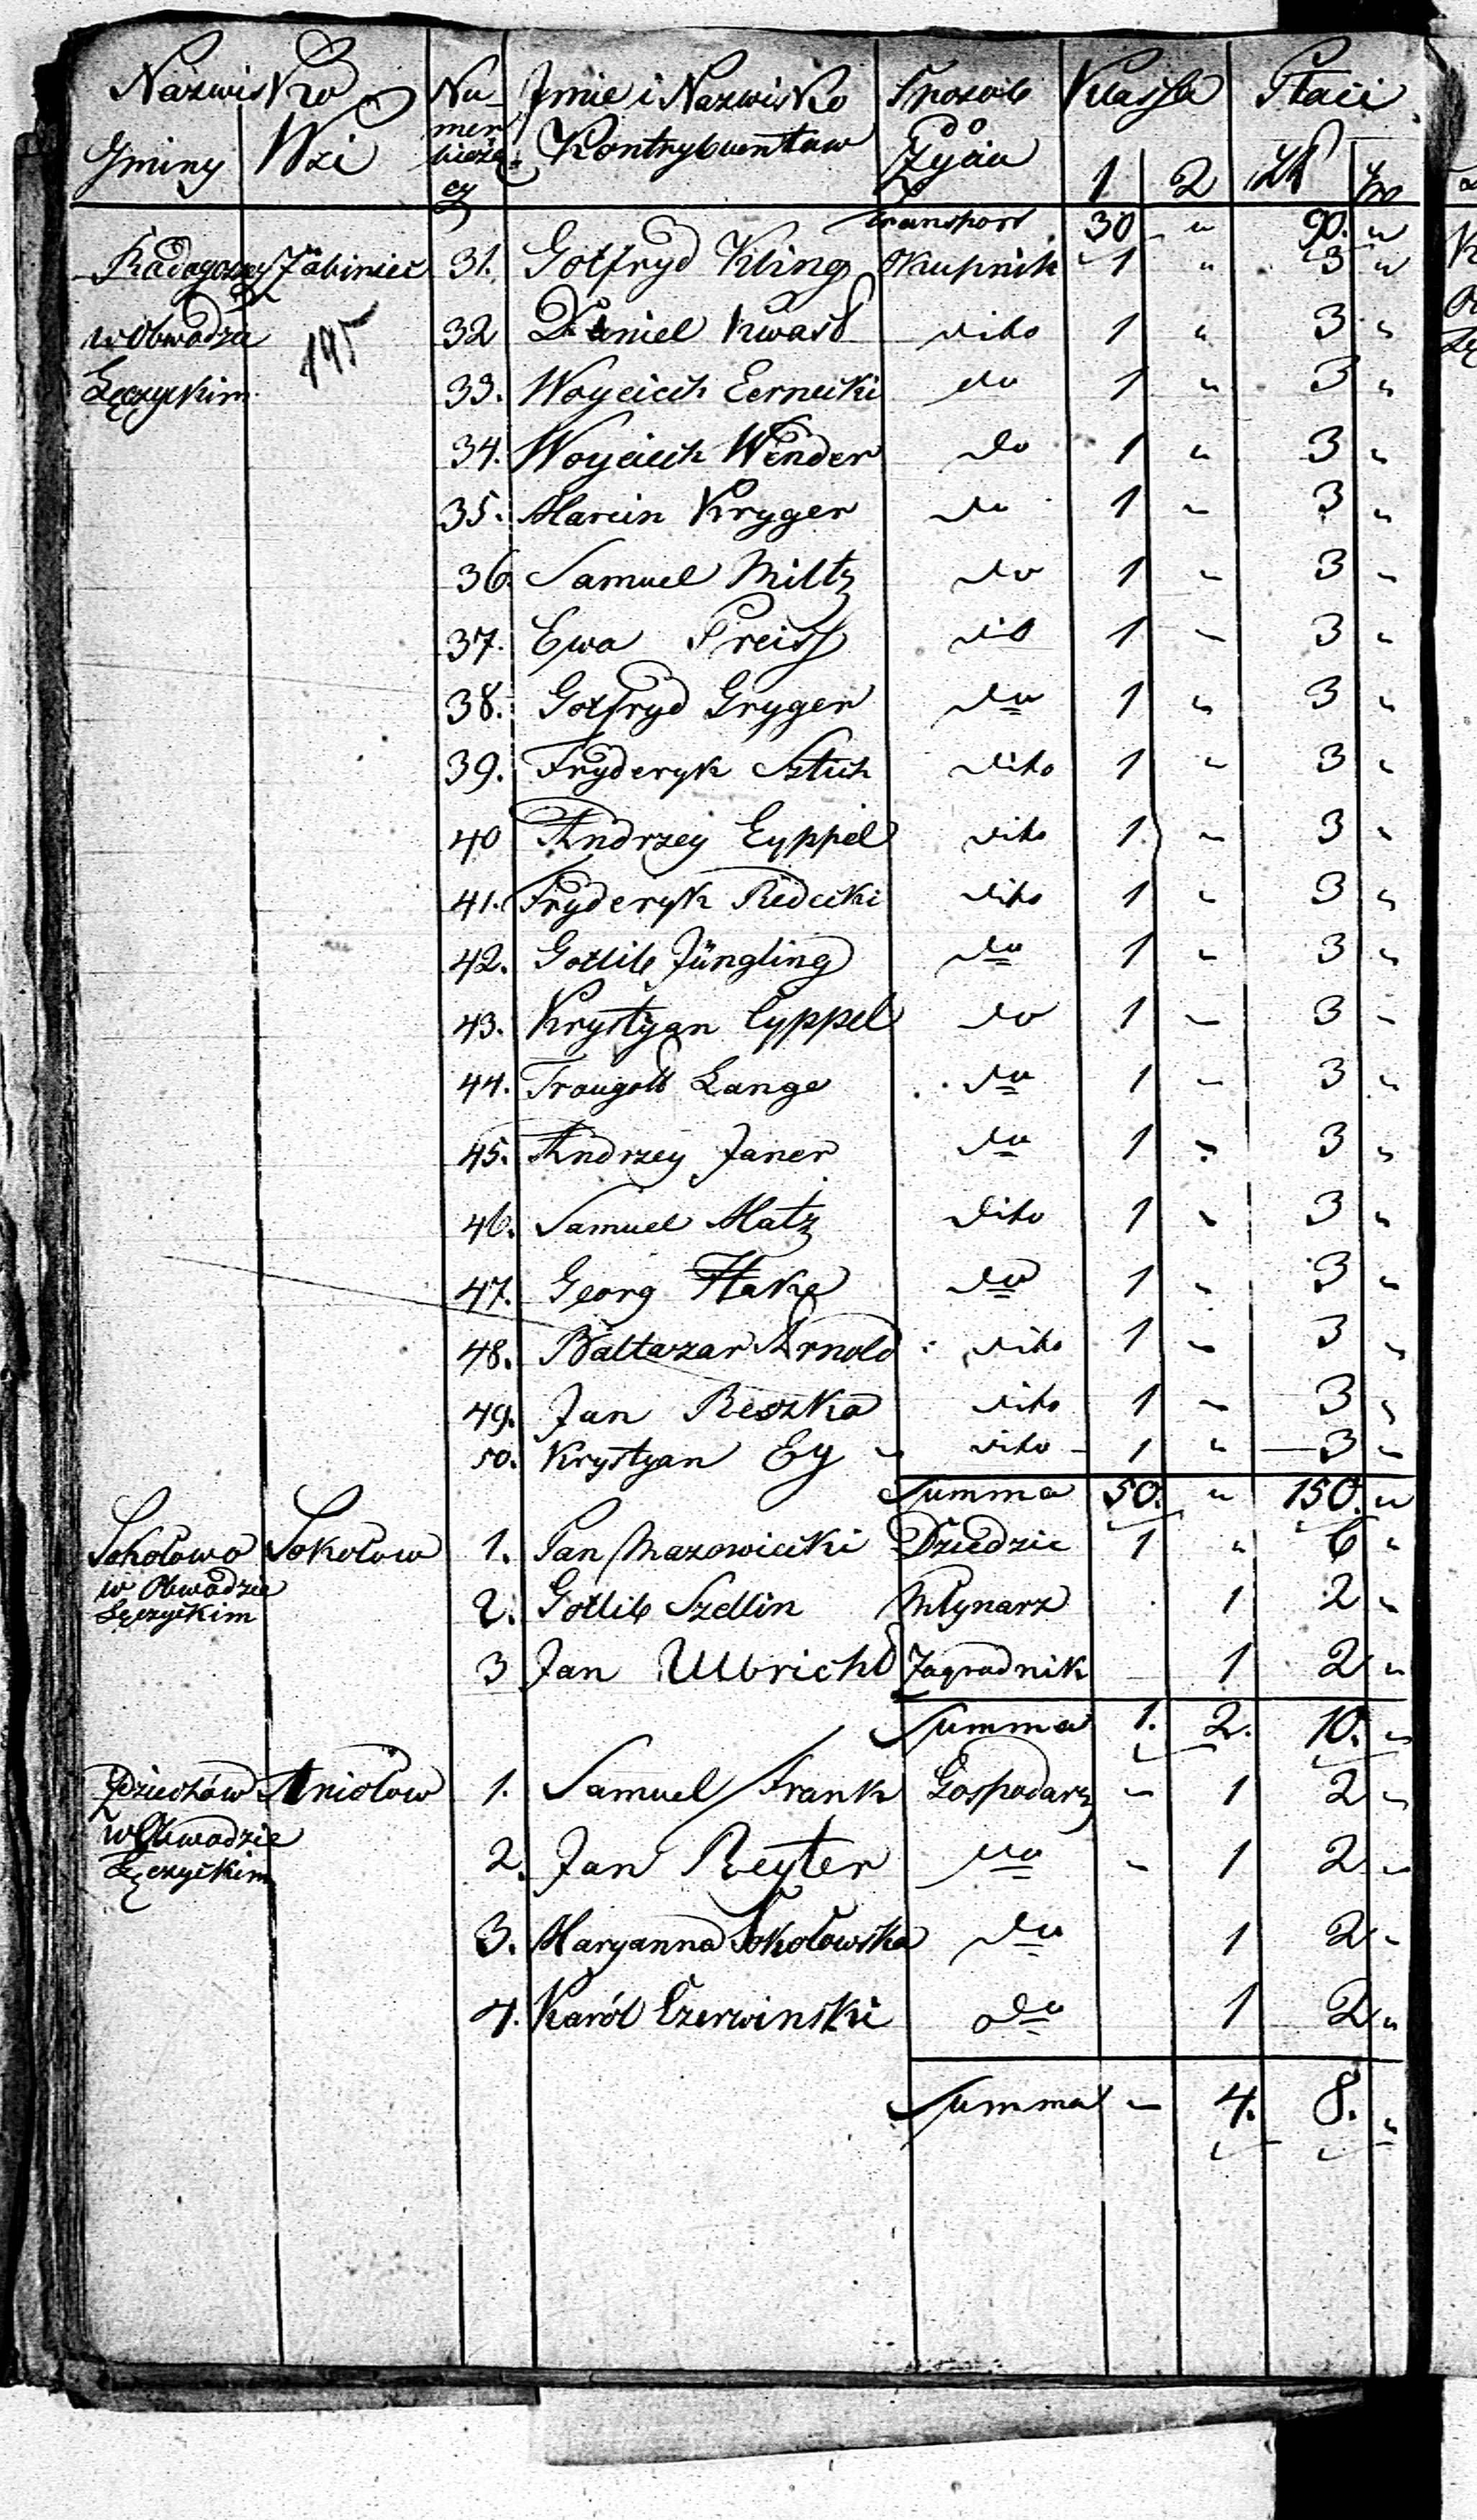 Nazwisko Nu- Jmie i Nazwisko Sposób Klassa Płaci
Gminy Wsi mer bieżą- cy Kontrybuentow Życia 1 2 Zł gr
Transport 30 " 90. "
Radogoszcz Żabiniec 31. Gotfryd Kling Okupnik 1 " 3 "
w Obwodzie 195 32 Daniel Kwast dito 1 " 3 "
Łęczyckim 33. Woyciech Czernecki do 1 " 3 "
34. Woyciech Wender do 1 " 3 "
35. Marcin Kryger do 1 " 3 "
36. Samuel Miltz do 1 " 3 "
37. Ewa Preiss dito 1 " 3 "
38. Gotfryd Gryger do 1 " 3 "
39. Fryderyk Sztich dito 1 " 3 "
40 Andrzey Eyppel dito 1 " 3 "
41. Fryderyk Redecki dito 1 " 3 "
42. Gotlib Jüngling do 1 " 3 "
43. Krystyan Eyppel do 1 " 3 "
44. Traugott Lange do 1 " 3 "
45. Andrzey Janer do 1 " 3 "
46. Samuel Matz dito 1 " 3 "
47. Georg Hake do 1 " 3 "
48. Baltazar Arnold dito 1 " 3 "
49. Jan Reszka dito 1 " 3 "
50. Krystyan Ey dito 1 " 3 "
Summa 50. " 150. "
Sokołowo Sokołow 1. Pan Mazowiecki Dziedzic 1 " 6 "
w Obwodzie
Łęczyckim 2. Gotlib Szellin Młynarz 1 2 "
3 Jan Ulbricht Zagrodnik 1 2 "
Summa 1. 2. 10. "
Dziechów Aniołow 1. Samuel Frank Gospodarz " 1 2 "
w Obwodzie 2. Jan Reyter do " 1 2 "
Łęczyckim
3. Maryanna Sokołowska do 1 2 "
4. Karól Czerwinski do 1 2 "
Summa " 4. 8. "